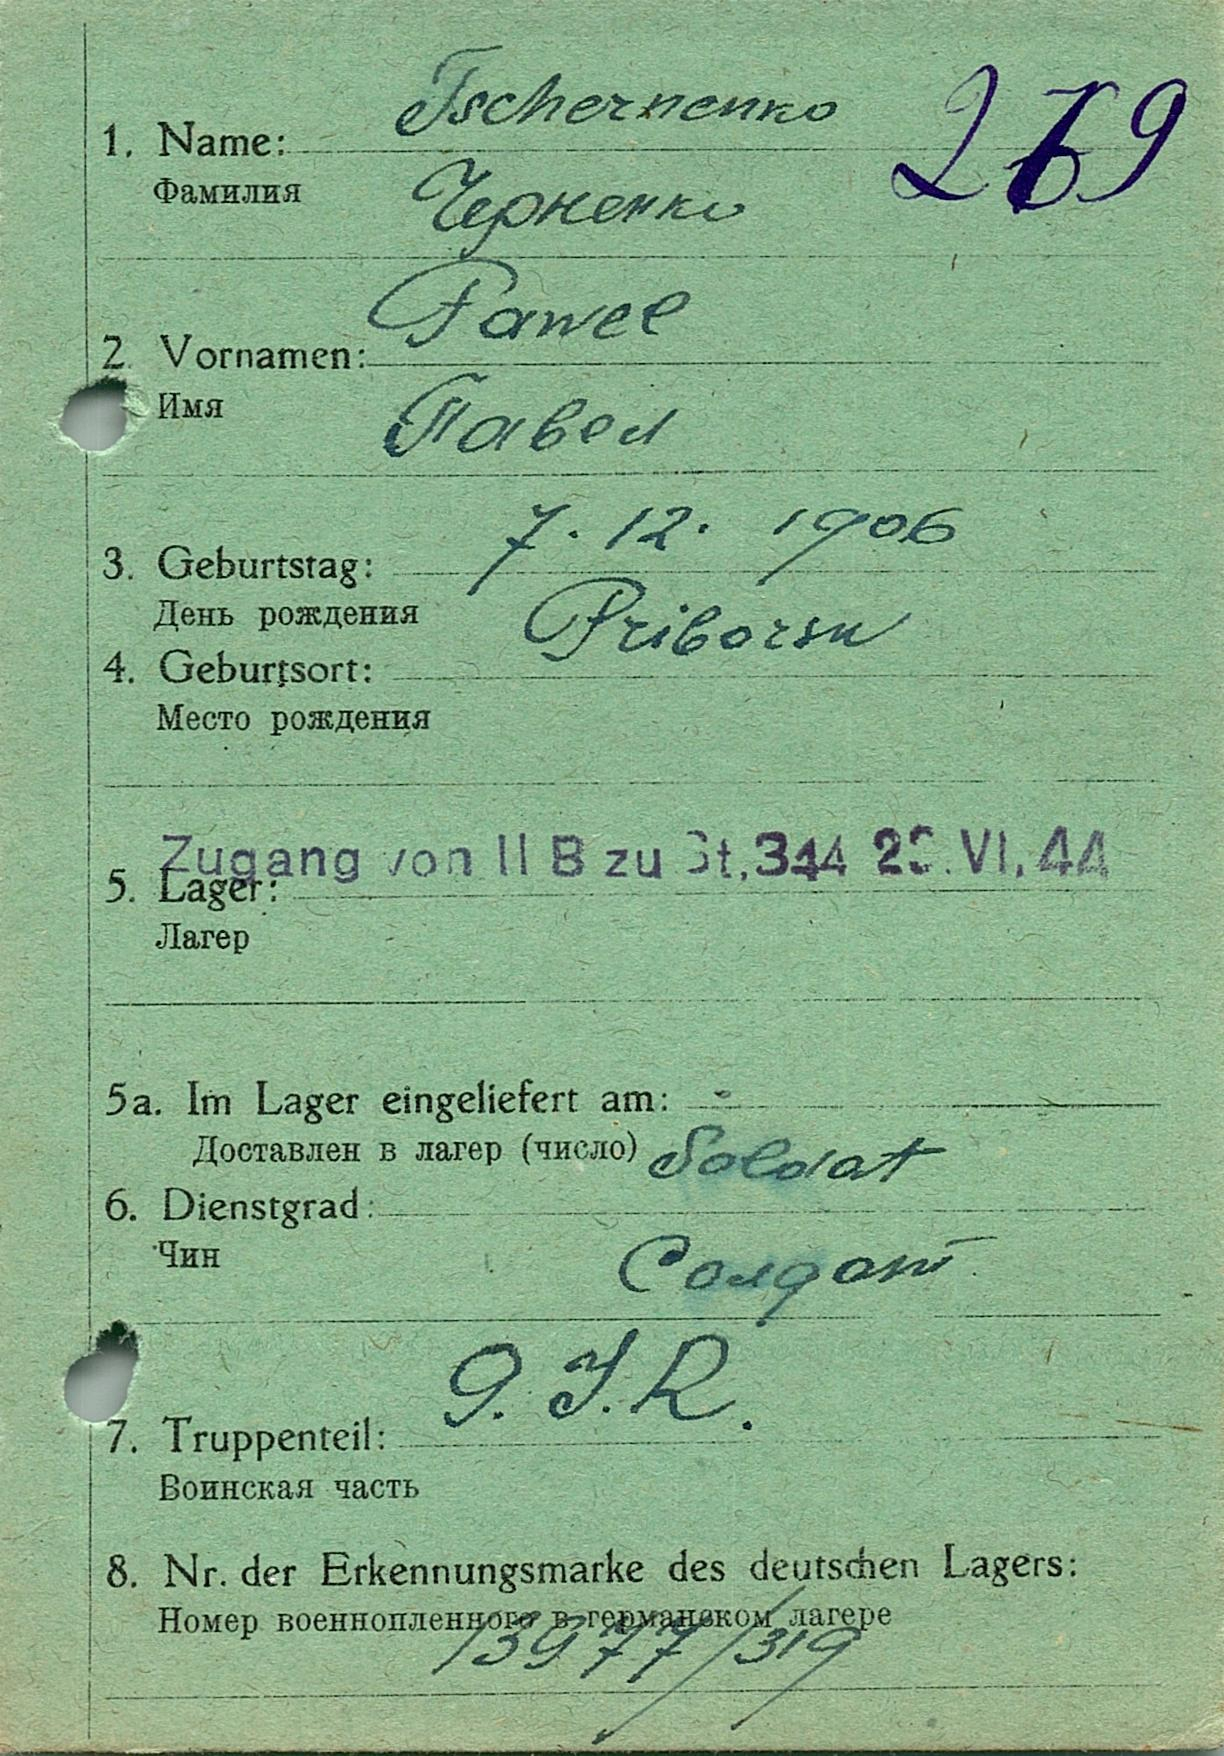 Tschernenko
269
1. Name:
Фамилия
Черненко
Pawel
2. Vornamen:
Имя
Павел
7. 12. 1906
3. Geburtstag:
День рождения
Priborsk
4. Geburtsort:
Место рождения
Zugang von II B zu St. 344 .VI. 44
5. Lager:
Лагер
5a. Im Lager eingeliefert am:
Доставлен в лагер (число)
Soldat
6. Dienstgrad:
Чин
Солдат
9. J. R.
7. Truppenteil:
Воинская часть
8. Nr. der Erkennungsmarke des deutschen Lagers:
Номер военнопленного в германском лагере
13977/319